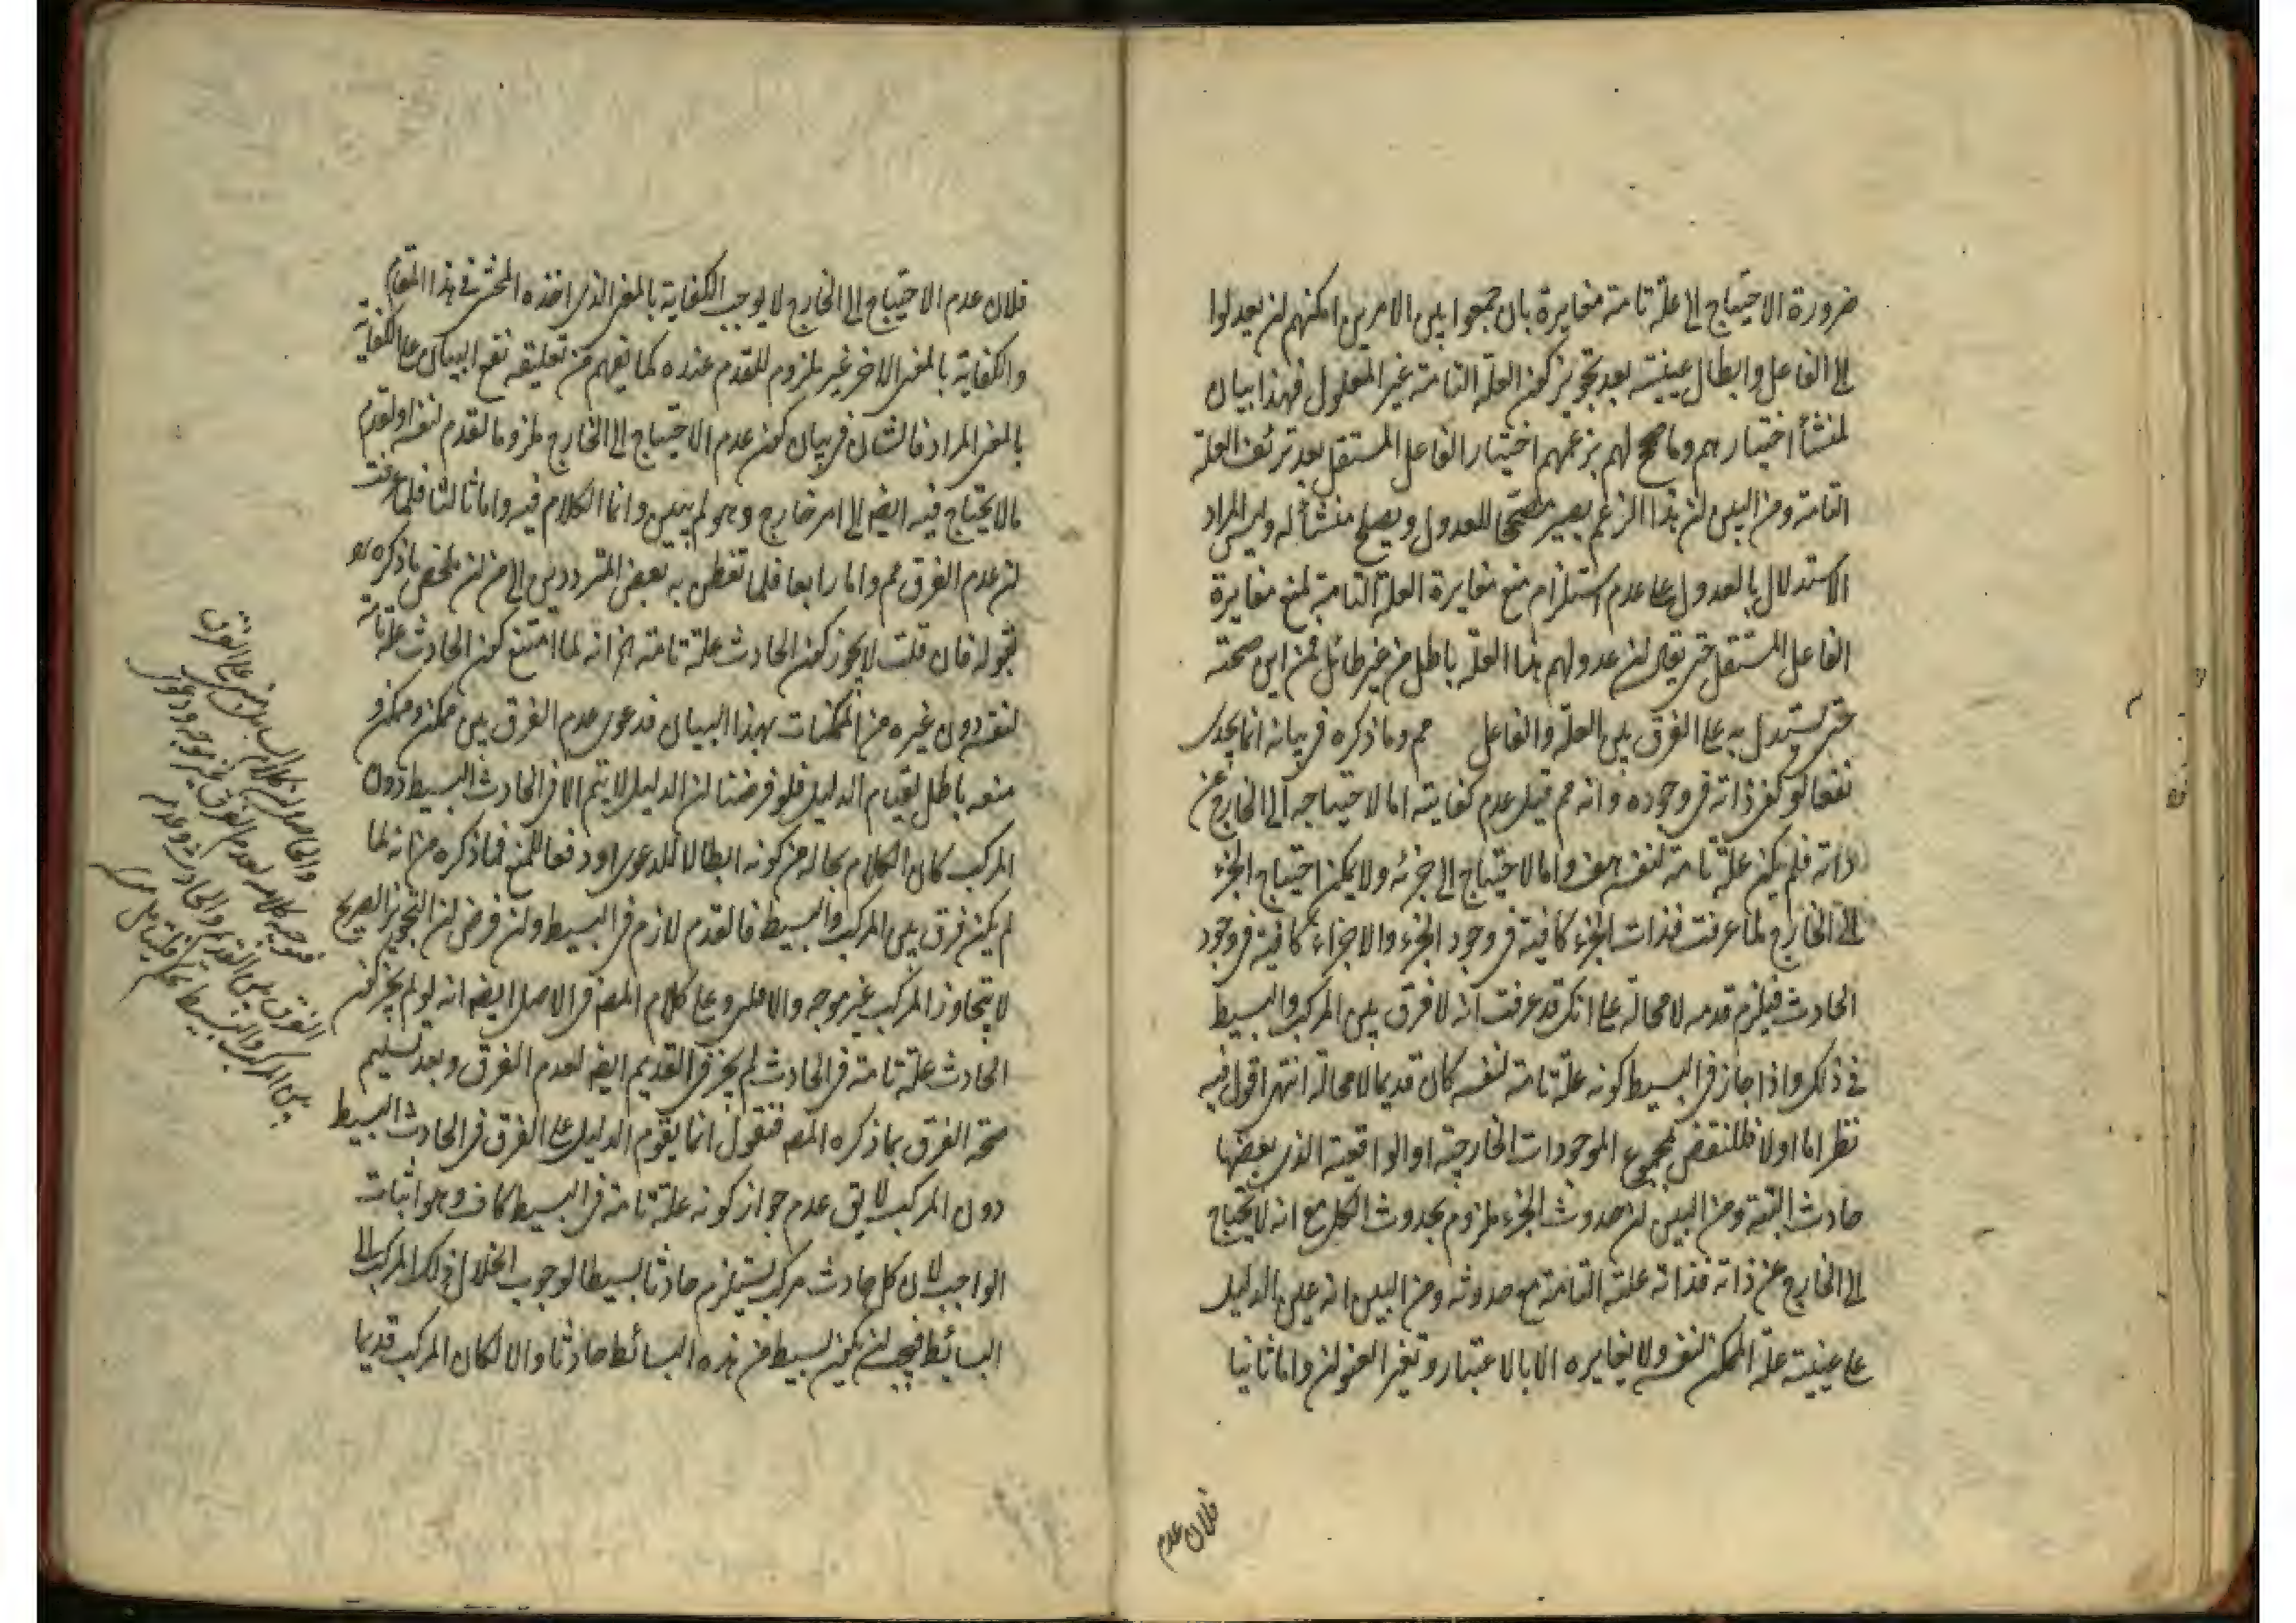 ضرورة الاحتياج الى علة تامة مغايرة بان جمعوا بين الامرين امكنهم ان يعدلوا
الى الفاعل وابطال عينيته بعد تجويز كون العلة التامة غير المعلول فهذا بيان
لمنشأ اختيارهم وما صح لهم بزعمهم اختيار الفاعل المستقل بعد تزئف العلة
التامة ومن البين ان هذا الزعم يصير مصححا للعدول ويصلح منشأ له وليس المراد
الاستدلال بالعدول على عدم استلزام منع مغايرة العلة التامة لمنع مغايرة
الفاعل المستقل حتى يقال ان عدولهم هنا العلة باطل من غير طائل فمن اين صحته
حتى يستدل به على الفرق بين العلة والفاعل مم وما ذكره في بيانه انما يجدى
نفعا لو كفى ذاته في وجوده وانه مم قيل عدم كفايته اما لاحتياجه الى الخارج عن
ذاته فلم يكن علة تامة لنفسه هف واما لاحتياج الى جزئه ولا يمكن احتياج الجزء
الى الخارج لما عرفت فذات الجزء كافية في وجود الجزء والاجزاء كافية في وجود
الحادث فيلزم قدمه لا محالة على انك قد عرفت انه لا فرق بين المركب والبسيط
في ذلك واذا جاز في البسيط كونه علة تامة لنفسه كان قديما لا محالة انتهى اقول فيه
نظر اما اولا فللنقض بمجموع الموجودات الخارجية او الواقعية الذي بعضها
حادث البتة ومن البين ان حدوث الجزء ملزوم بحدوث الكل مع انه لا يحتاج
الى الخارج عن ذاته فذاته علته التامة مع حدوثه ومن البين انه عين الدليل
على عينية علة الممكن لنفسه ولا يغايره الا بالاعتبار وتغير العنوان واما ثانيا
فلان عدم
فلان عدم الاحتياج الى الخارج لا يوجب الكفاية بالمعنى الذي اخذه المحشى في هذا المقام
والكفاية بالمعنى الاخر غير ملزوم للقدم عنده كما يفهم من تعليقه نفع البيان على الكفاية
بالمعنى المراد فالشان في بيان كون عدم الاحتياج الى الخارج ملزوما لقدم نفسه او لقدم
ما لا يحتاج فيه ايضه الى امر خارج وهو لم يبين وانما الكلام فيه واما ثالثا فلما عرفت
ان عدم الفرق مم واما رابعا فلما تفطن به بعض المترددين الى من ان ملخص ما ذكره
بقوله فان قلت لا يجوز كون الحادث علة تامة الخ انه لما امتنع كون الحادث علة تامة
لنفسه دون غيره من الممكنات بهذا البيان فدعوى عدم الفرق بين ممكن وممكن و
منعه باطل لقيام الدليل فلو فرضنا ان الدليل لا يتم الا في الحادث البسيط دون
المركب كان الكلام بحاله من كونه ابطالا للدعوى او دفعا للمنع فما ذكره من انه لما
لم يكن فرق بين المركب والبسيط فالقدم لازم في البسيط وان فرض ان التجويز الصريح
لا يتجاوز المركب غير موجه والا فلى وعلى كلام المصه في الاصل ايضه انه لو لم يجز كون
الحادث علة تامة في الحادث لم يجز في القديم ايضه لعدم الفرق وبعد تسليم
صحة الفرق بما ذكره المصه فنقول انما يقوم الدليل على الفرق في الحادث البسيط
دون المركب لا يق عدم جواز كونه علة تامة في البسيط كاف وهو اثبات
الواجب لان كل حادث مركب يستلزم حادثا بسيطا لوجوب انحلال ذلك المركب الى
البسائط فيجب ان يكون بسيط من هذه البسائط حادثا والا لكان المركب قديما
والحاصل ان كلام السائل مبنى على الفرق
فتوجيه كلامه بعدم الفرق غير موجه ودعوى
الفرق بين القديم والحادث وعدمه
بين المركب والبسيط تحكم فليتامل